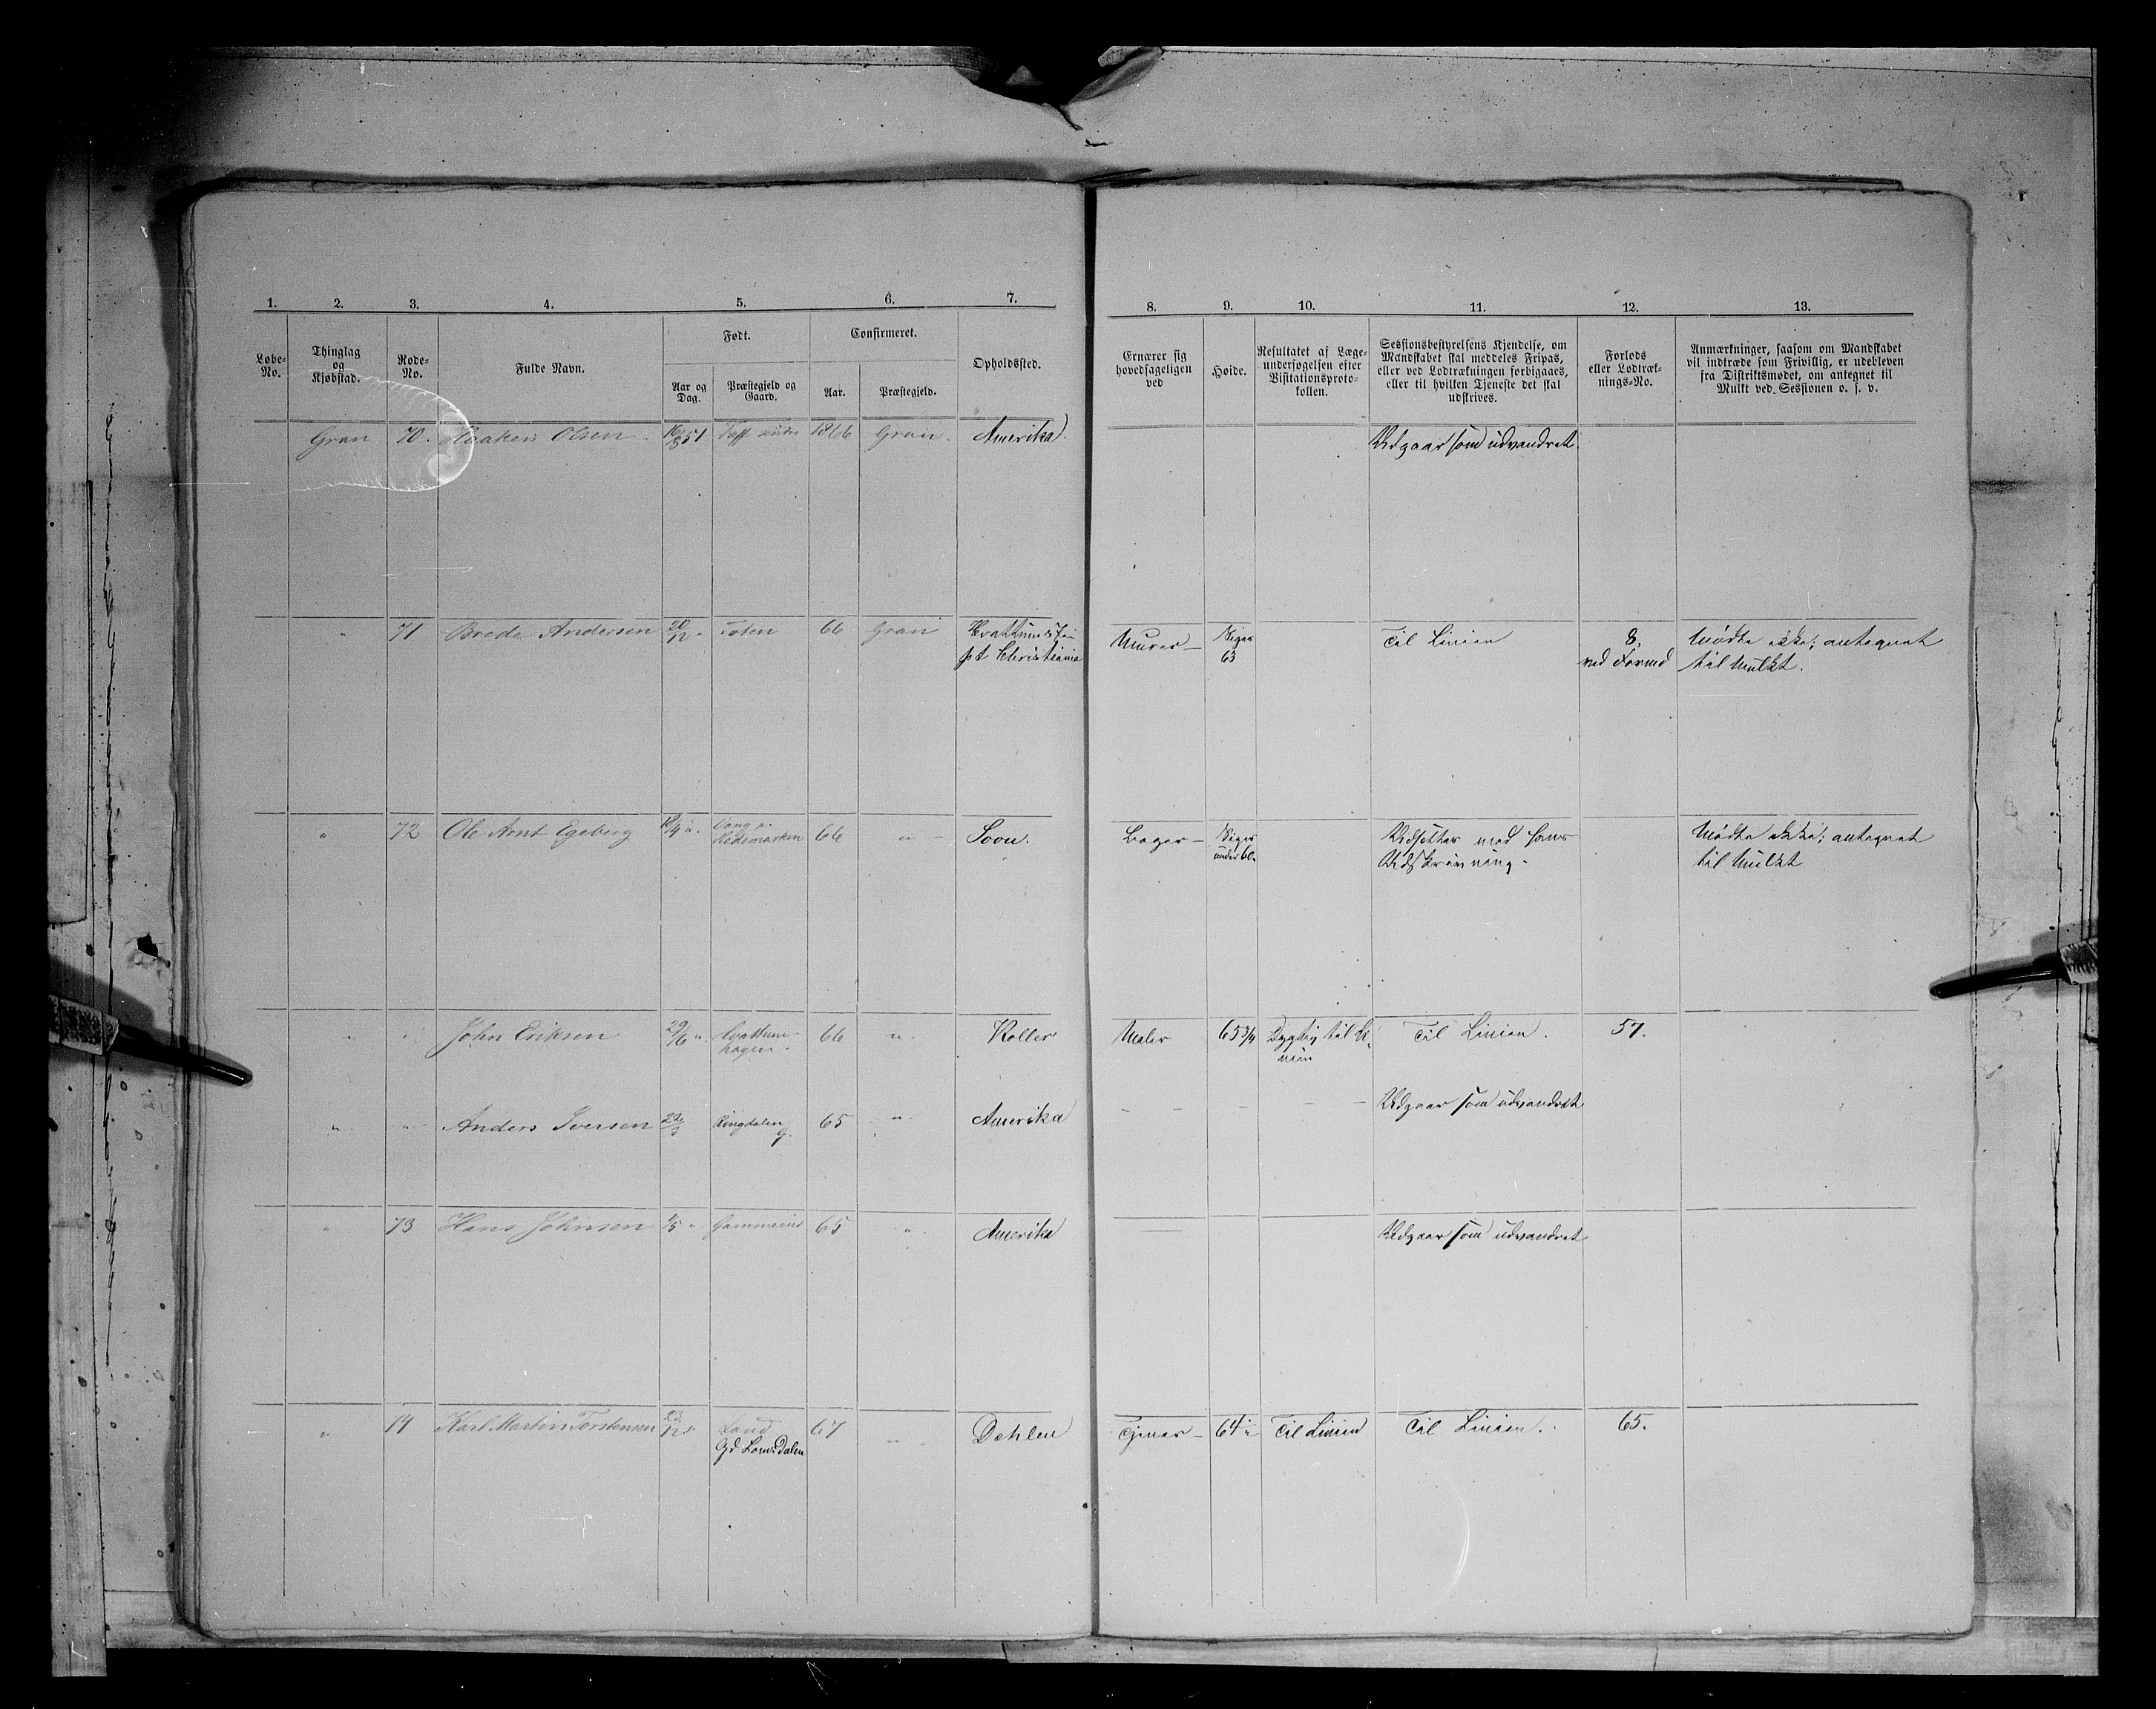 1. 2. 3. 4. 5. 6. 7. 8. 9. 10. 11. 12. 13.
Løbe-No.
Thinglag og Kjøbstad.
Rode-No.
Fulde Navn.
Født.
Aar og Dag.
Præstegjeld og Gaard.
Confirmeret.
Aar.
Præstegjeld.
Opholdssted.
Ernærer sig hovedsageligen ved
Høide.
Resultatet af Læge-undersøgelsen efter Visitationsproto-kollen.
Sessionsbestyrelsens Kjendelse, om Mandskabet skal meddeles Fripas, eller ved Lodtrækningen forbigaaes, eller til hvilken Tjeneste det skal udskrives.
Forlods eller Lodtræk-nings-No.
Anmærkninger, saasom om Mandskabet vil indtræde som Frivillig, er udebleven fra Distriktsmødet, om antegnet til Mulkt ved Sessionen o. s. v.
Gran 70. Haaken Olsen. 51 1866 Gran. Amerika. Udgaar som udvandret.
" 71 Brede Andersen 20/12 " Toten 66 Gran Murer – Siger Til Linien 8, Mødte ikke; antegnet
pt Christiania 63 ved Forend til Mulkt.
" 72 Ole Arnt Egeberg 18/4 ". Vang p. 66 " – Soon. Bager – Siger Udsættes med hans Mødte ikke; antegnet
Hedemarken under 60. Udskrivning. til Mulkt
" " John Eriksen 29/6 ". Hvattum- 66 ". Koller Maler 65 3/4 Dygtig til Li- Til Linien. 57.
hagen. nien
" " Anders Iversen Ringdalen 65 ". Amerika – – – – – Udgaar som udvandret
G.
" 73 Hans Johnsen 1/5 " 65 ". Amerika Udgaar som udvandret
" 74 Karl Martin Torstensen 23/12 " Land 67 " . Dæhlen Tjener – 64 " Til Linien Til Linien. 65.